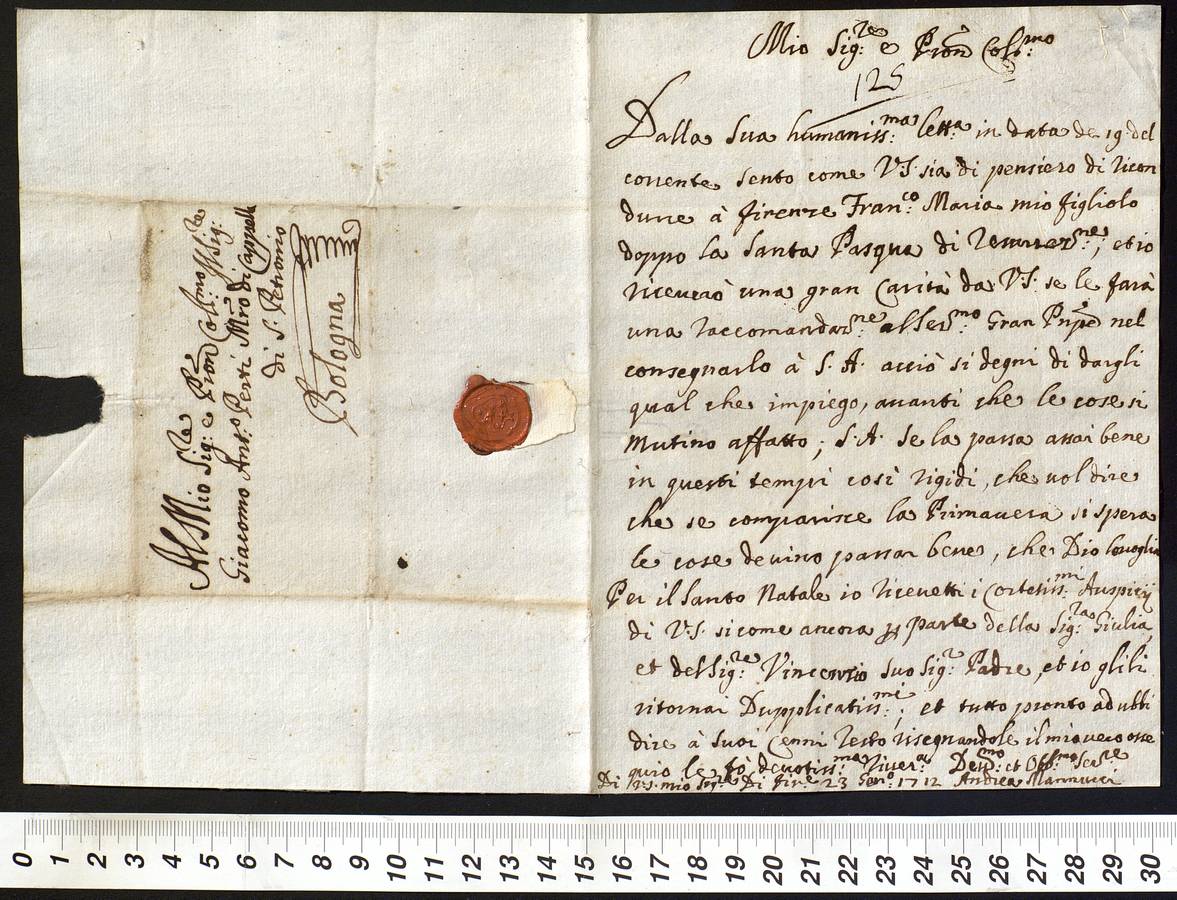 Al Mio Sig:re e Pron Col:mo Il Sig:
Giacomo Ant:o Perti Mro di Cappella
di S. Petronio
Bologna
Mio Sig:re e Pron Col:mo
125
Dalla Sua humaniss:ma lett:a in data de 19. del
corrente sento come V.S. sia di pensiero di ricon
durre à firenze Fran:co Maria mio figliolo
doppo la Santa Pasqua di resurrez:ne; et io
riceverò una gran Carità da V.S. se le farà
una raccomandaz:ne al Ser:mo Gran Pnpe nel
consegnarlo à S. A. acciò si degni di dargli
qual che impiego, avanti che le cose si
mutino affatto; S.A. se la passa assai bene
in questi tempi così rigidi, che vol dire
che se comparisce la Primavera si spera
le cose devino passar bene, che Dio lo voglia
Per il Santo Natale io ricevetti i Cortesiss:mi Auspicij
di V.S. si come ancora p parte della Sig:ra Giulia,
et del Sig:re Vincenzio suo Sig:r Padre, et io glili
ritornai Dupplicatiss:mi; et tutto pronto ad ubbi
dire à Suoi Cenni resto rassegnandole il mio vero osse
quio le fò devotiss:ma river:a Dev:mo et Obb:mo Se:re
Di V.S. mio Sig:re Di Fir:e 23 Gen:o 1712 Andrea Mannucci
0 1 2 3 4 5 6 7 8 9 10 11 12 13 14 15 16 17 18 19 20 21 22 23 24 25 26 27 28 29 30